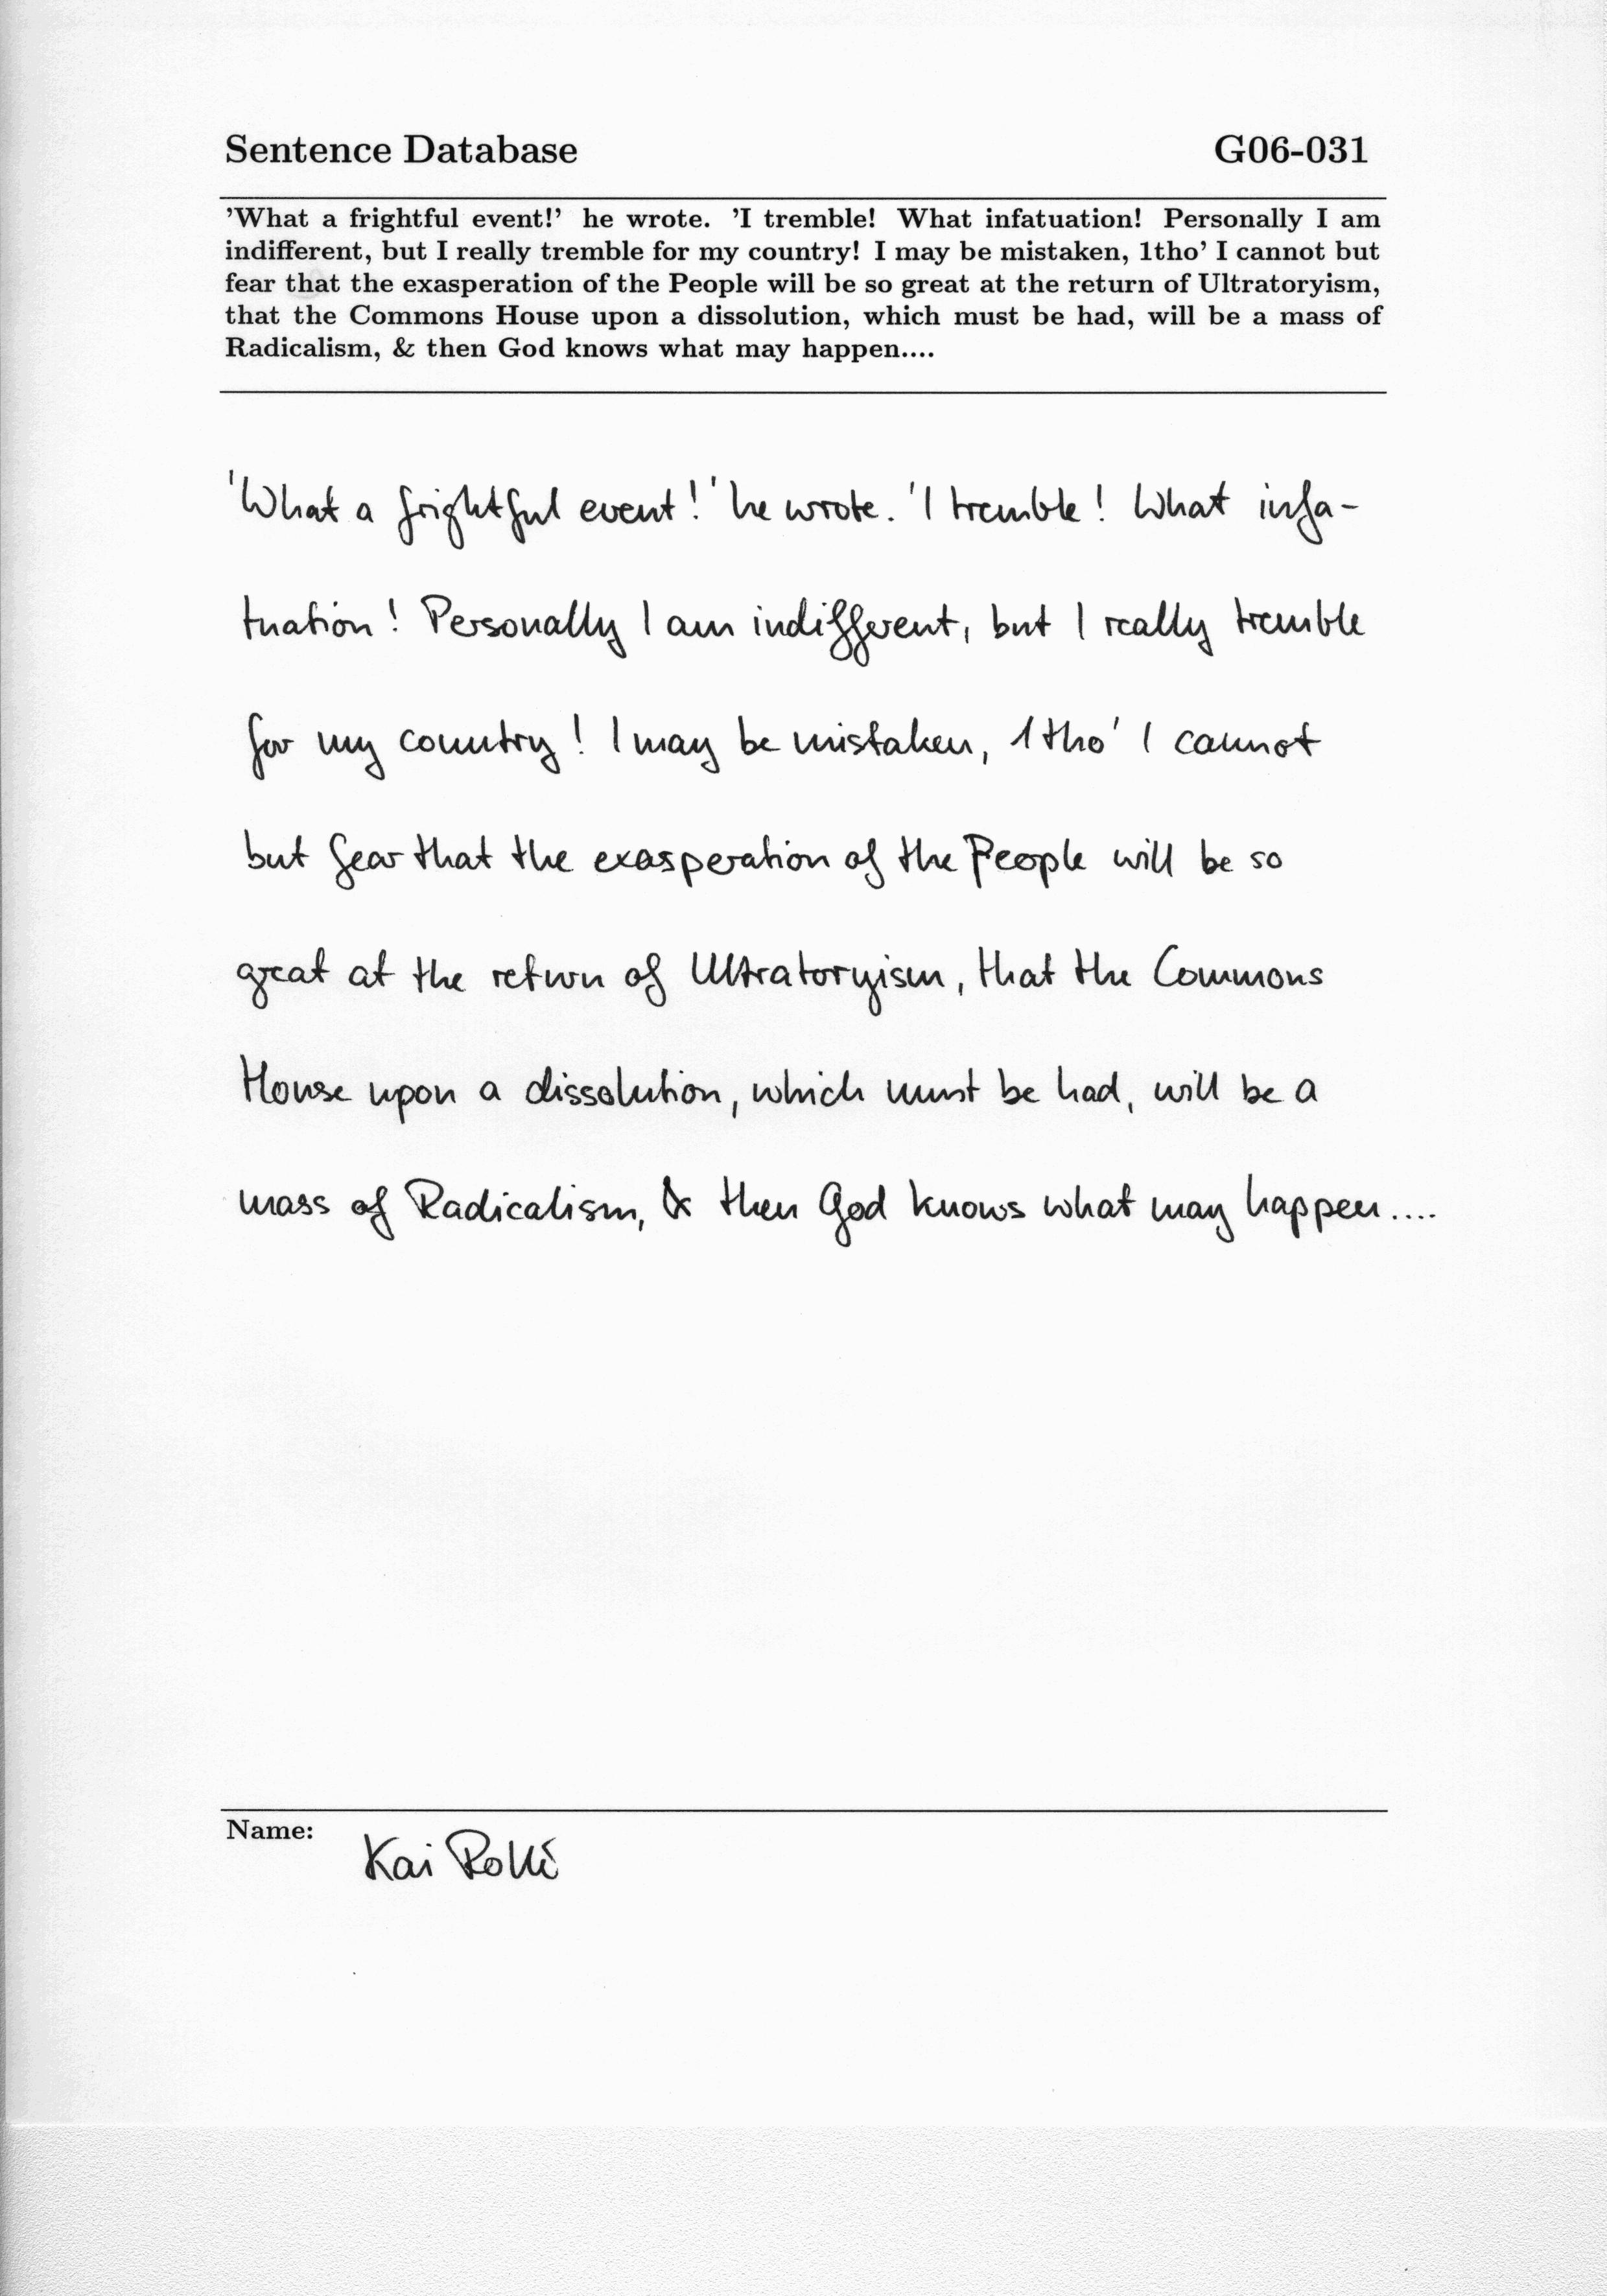 Sentence Database G06-031
'What a frightful event!' he wrote. 'I tremble! What infatuation! Personally I am
indifferent, but I really tremble for my country! I may be mistaken, 1tho' I cannot but
fear that the exasperation of the People will be so great at the return of Ultratoryism,
that the Commons House upon a dissolution, which must be had, will be a mass of
Radicalism, & then God knows what may happen....
'What a frightful event!' he wrote. 'I tremble! What infa-
tuation! Personally I am indifferent, but I really tremble
for my country! I may be mistaken, 1tho' I cannot
but fear that the exasperation of the People will be so
great at the return of Ultratoryism, that the Commons
House upon a dissolution, which must be had, will be a
mass of Radicalism, & then God knows what may happen....
Name:
Kai